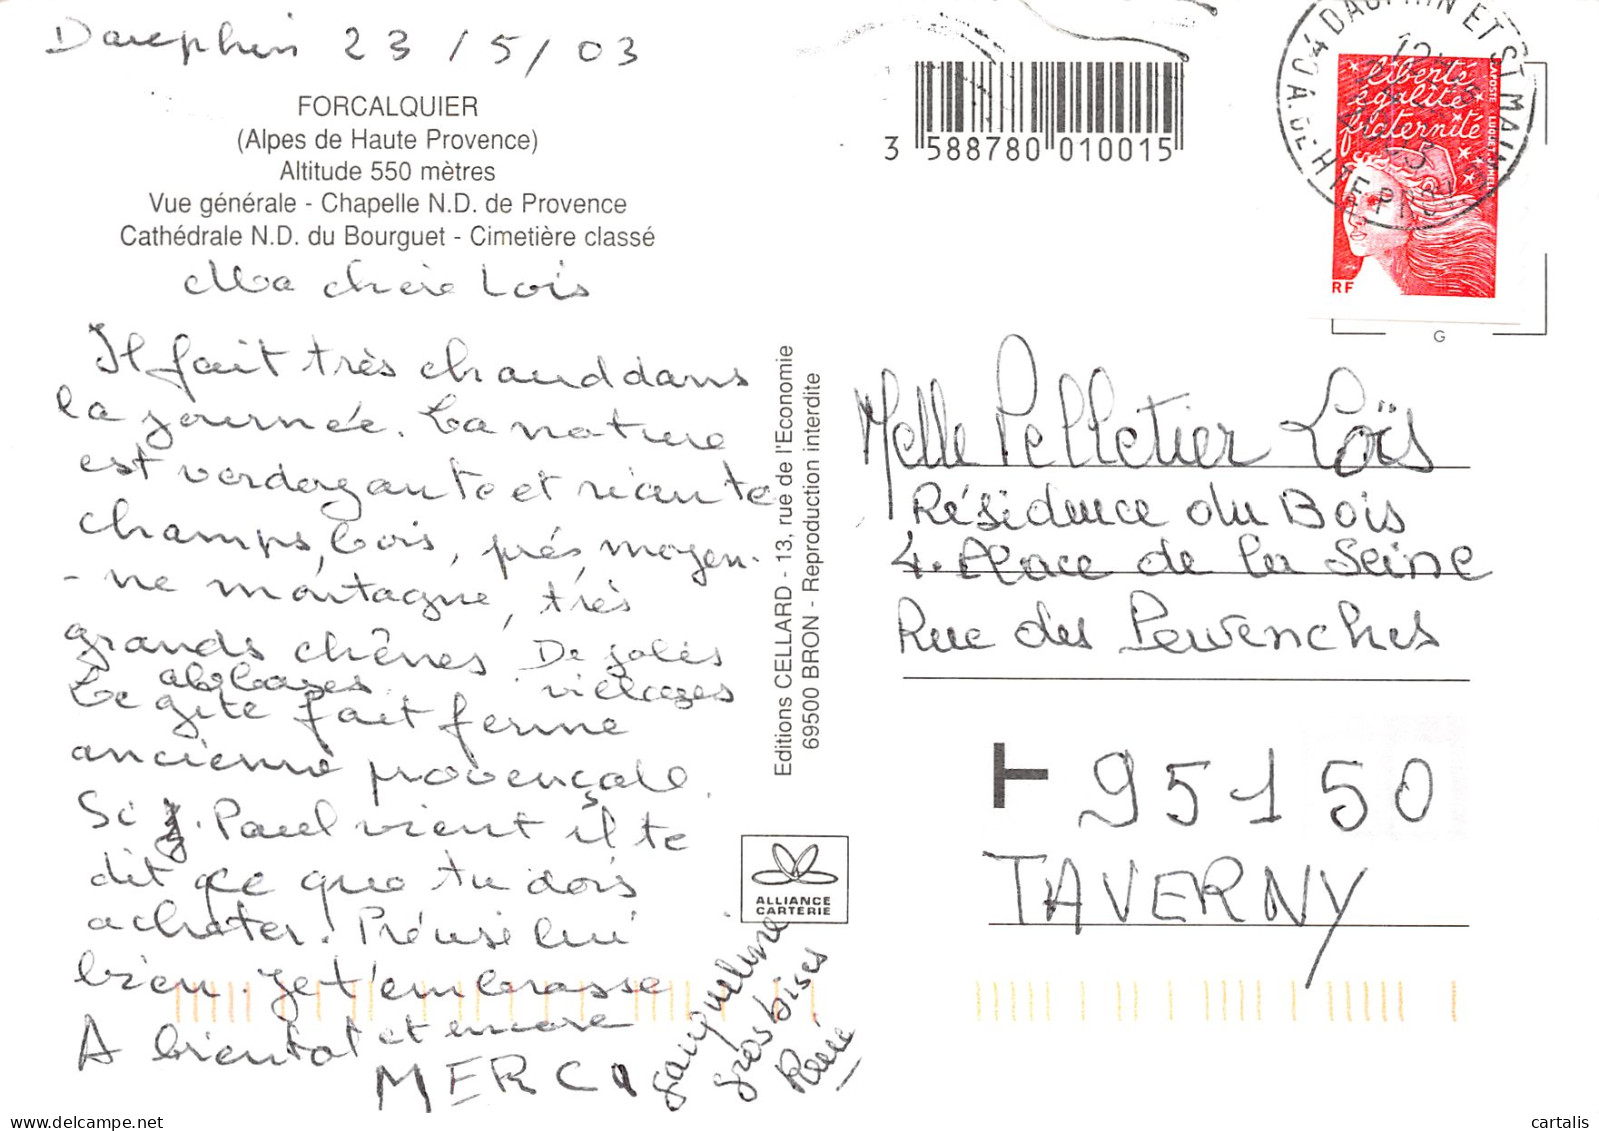 Dauphin 23/5/03
FORCALQUIER
(Alpes de Haute Provence)
Altitude 550 mètres
Vue générale - Chapelle N.D. de Provence
Cathédrale N.D. du Bourguet - Cimetière classé
Ma chère Loïs
Il fait très chaud dans
la journée. La nature
est verdoyante et riante
champs, bois, prés moyen-
-ne montagne, très
grands chênes De jolis
villages
abbayes
Le gîte fait ferme
ancienne provençale.
Si J. Paul vient il te
dit ce que tu dois
acheter! Précise lui
bien. Je t'embrasse
A bientot et encore
MERCI
Jacqueline
gros bises
René
Editions CELLARD - 13, rue de l'Economie
69500 BRON - Reproduction interdite
ALLIANCE
CARTERIE
3 588780 010015
DAUPHIN ET ST MAIME
04 A. DE HTE PROV
liberté
égalité
fraternité
LA POSTE LUQUET
RF
G
Melle Pelletier Loïs
Résidence du Bois
4. Place de la Seine
Rue des Pervenches
T 95150
TAVERNY
cartalis